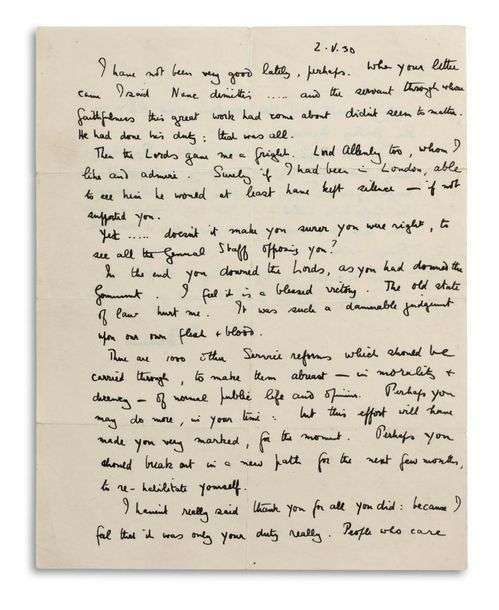 2.V.30
I have not been very good lately, perhaps. When your letter
came I said Nunc dimittis ..... and the servant through whose
faithfulness this great work had come about didn't seem to matter.
He had done his duty: that was all.
Then the Lords gave me a fright. Lord Allenby too, whom I
like and admire. Surely if I had been in London, able
to see him he would at least have kept silence – if not
supported you.
Yet ..... doesn't it make you surer you were right, to
see all the General Staff opposing you?
In the end you downed the Lords, as you had downed the
Government. I feel it is a blessed victory. The old state
of law hurt me. It was such a damnable judgment
upon our own flesh + blood.
There are 1000 other Service reforms which should be
carried through, to make them abreast – in morality +
decency – of normal public life and opinion. Perhaps you
may do more, in your time: but this effort will have
made you very marked, for the moment. Perhaps you
should break out in a new path for the next few months,
to re-habilitate yourself.
I haven't really said thank you for all you did: because I
feel that it was only your duty really. People who care